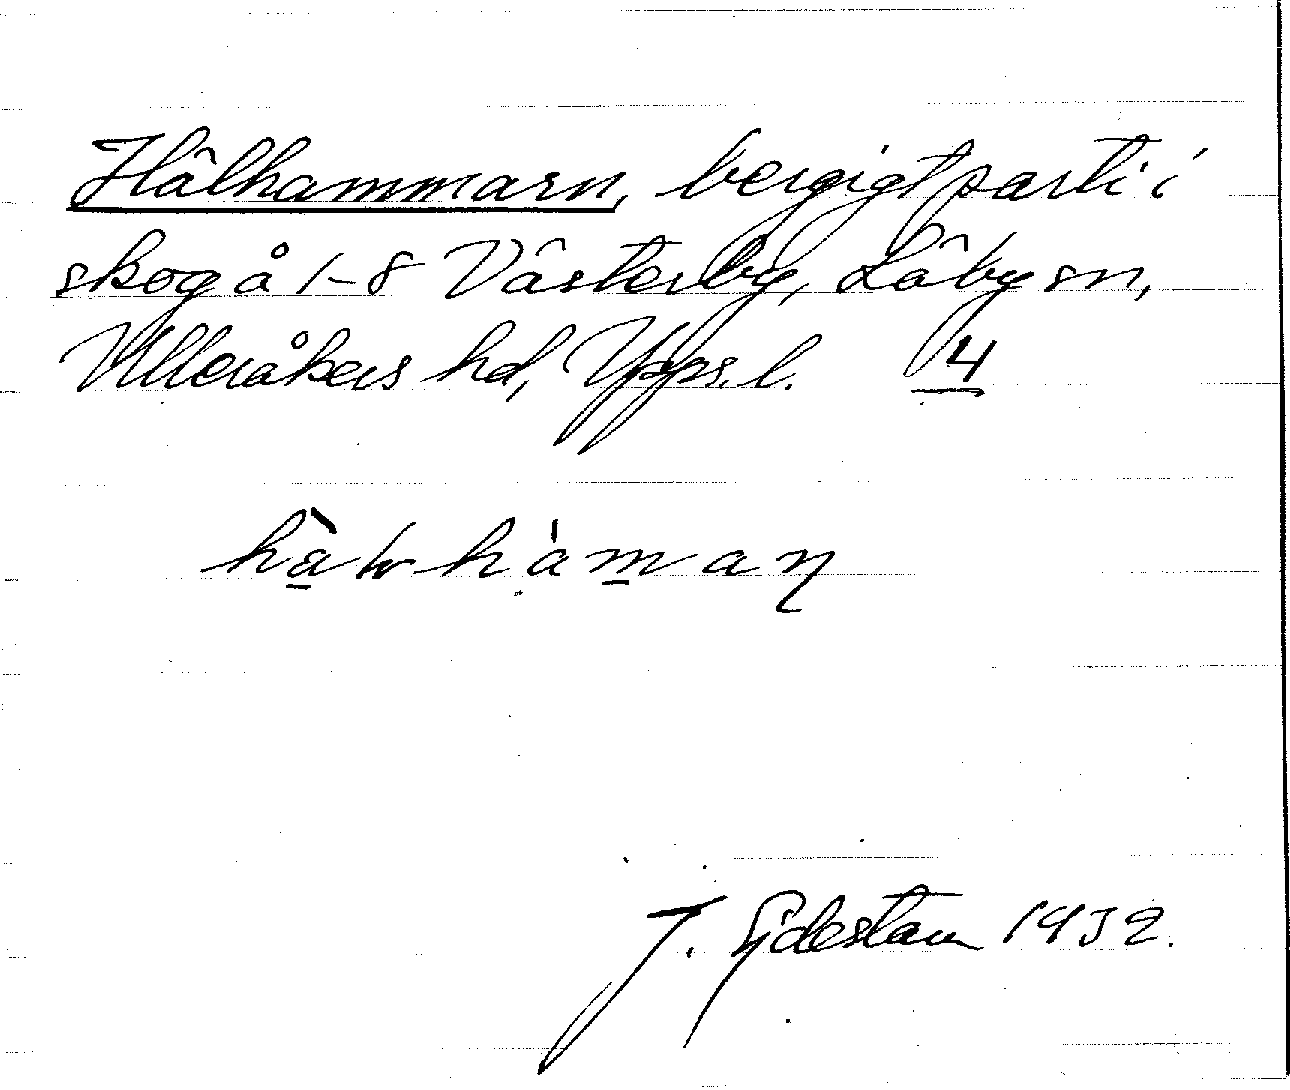 Hälhammarn, bergigt parti i
skog å 1-8 Västerby, Läby sn,
Ulleråkers hd, Upps. l. 4
J. Ejdestam 1932.